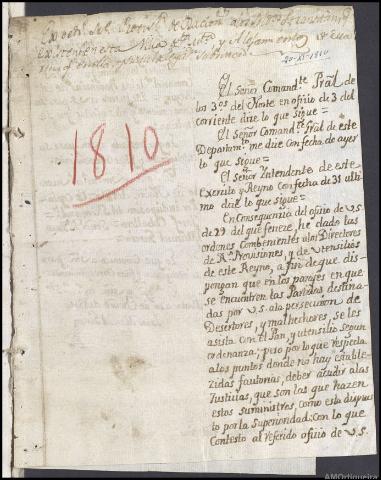 20-XI-1810
1810
El Señor Comandte Pral. de
los 3os del Norte en oficio de 3 del
corriente dize lo que sigue=
El Señor Comandte Gral de este
Departamto me dice con fecha de ayer
lo que sigue=
El señor Yntendente de este
Exercito y Reyno con fecha de 31 ulti
mo dize lo que sigue=
En consequencia del oficio de V.S.
de 29 del que feneze, he dado las
ordenes combenientes a los Directores
de Rs Provisiones, y de utensilios
de este Reyno, a fin de que dis-
pongan que en los parajes en que
se encuentren las Partidas destina-
das por V.S. ala persecucion de
Desertores, y malhechores, se les
asista con el Pan, y utensilio segun
ordenanza; pero por lo que respecta
alos puntos donde no hay estable-
zidas factorias, deber acudir alas
Justicias, que son las que hazen
estos suministros, como esta dispues
to por la Superioridad: con lo que
Contesto al referido oficio de V.S.
AMOrtigueira